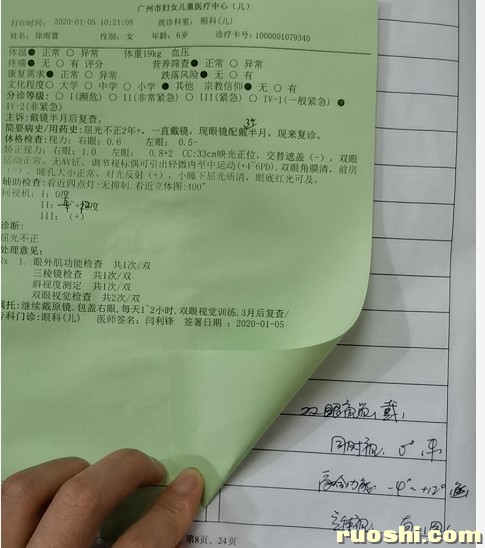 广州市妇女儿童医疗中心(儿)
打印时间: 2020-01-05 10:21:08 就诊科室: 眼科(儿)
姓名: 徐雨萱 性别: 女 年龄: 6岁 诊疗卡号: 1000001079340
体温● 正常 ○ 异常 体重19kg 血压
疼痛● 无 ○ 有 评分 营养筛查● 正常 ○ 异常
康复需求● 正常 ○ 异常 跌落风险● 无 ○ 有
文化程度○ 大学 ○ 中学 ○ 小学 ● 其他 宗教信仰● 无 ○ 有
分诊等级: ○ I(濒危) ○ II(非常紧急) ○ III(紧急) ○ IV-1(一般紧急) ●
IV-2(非紧急)
主诉: 戴镜半月后复查。
简要病史/用药史: 屈光不正2年+, 一直戴镜, 现眼镜配戴半月, 现来复诊。
体格检查: 视力: 右眼: 0.6 左眼: 0.5-
矫正视力: 右眼: 1.0 左眼: 0.8+2 CC:33cm映光正位, 交替遮盖(-), 双眼
运动正常。无AV征。调节视标偶可引出轻微内至中运动(+4~6PD). 双眼角膜清, 前房
(-), 瞳孔大小正常, 对光反射(+), 小瞳下屈光质清, 眼底红光可及。
辅助检查: 看近四点灯: 无抑制. 看近立体图: 400"
同视机: I: 0度
II:
III: (+)
诊断:
屈光不正
处理意见:
Rx 1. 眼外肌功能检查 共1次/双
三棱镜检查 共1次/双
斜视度测定 共1次/双
双眼视觉检查 共2次/双
嘱托: 继续戴原镜. 包盖右眼, 每天1~2小时. 双眼视觉训练. 3月后复查/
专科门诊: 眼科(儿) 医师签名: 闫利锋 签署日期: 2020-01-05
同时视 0°
融合功能 -4°~+12°
立体视 有
第8页, 24页
ruoshi.com